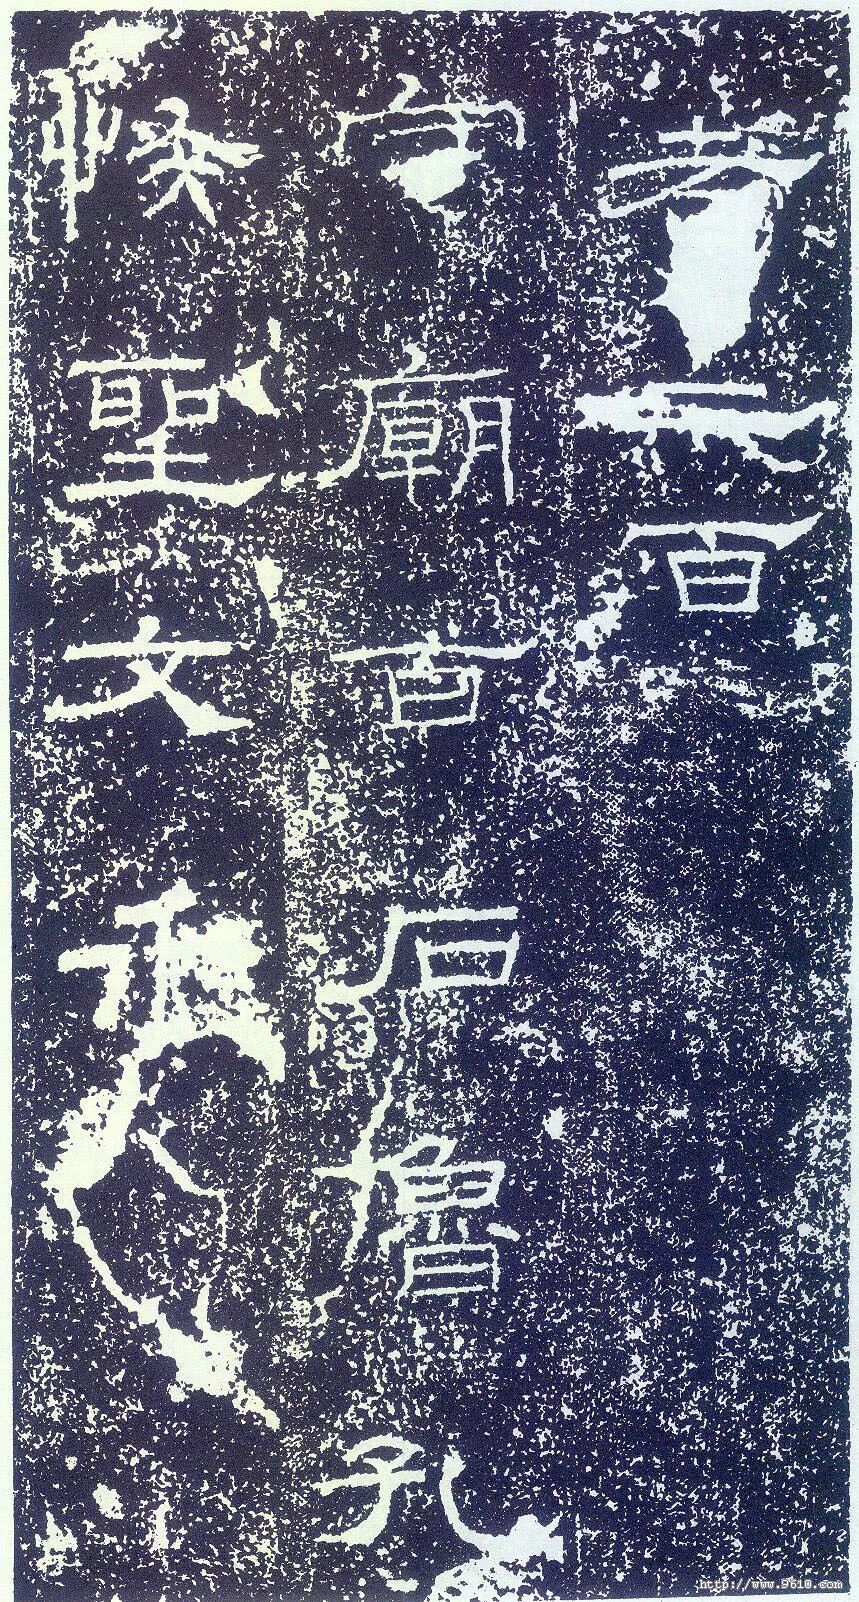 孝二百
守廟百石魯孔
恢聖文
http://www.9610.com